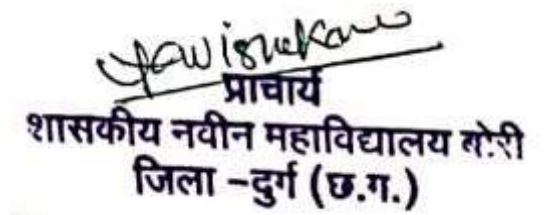 प्राचार्य
शासकीय नवीन महाविद्यालय बोरी
जिला -दुर्ग (छ.ग.)